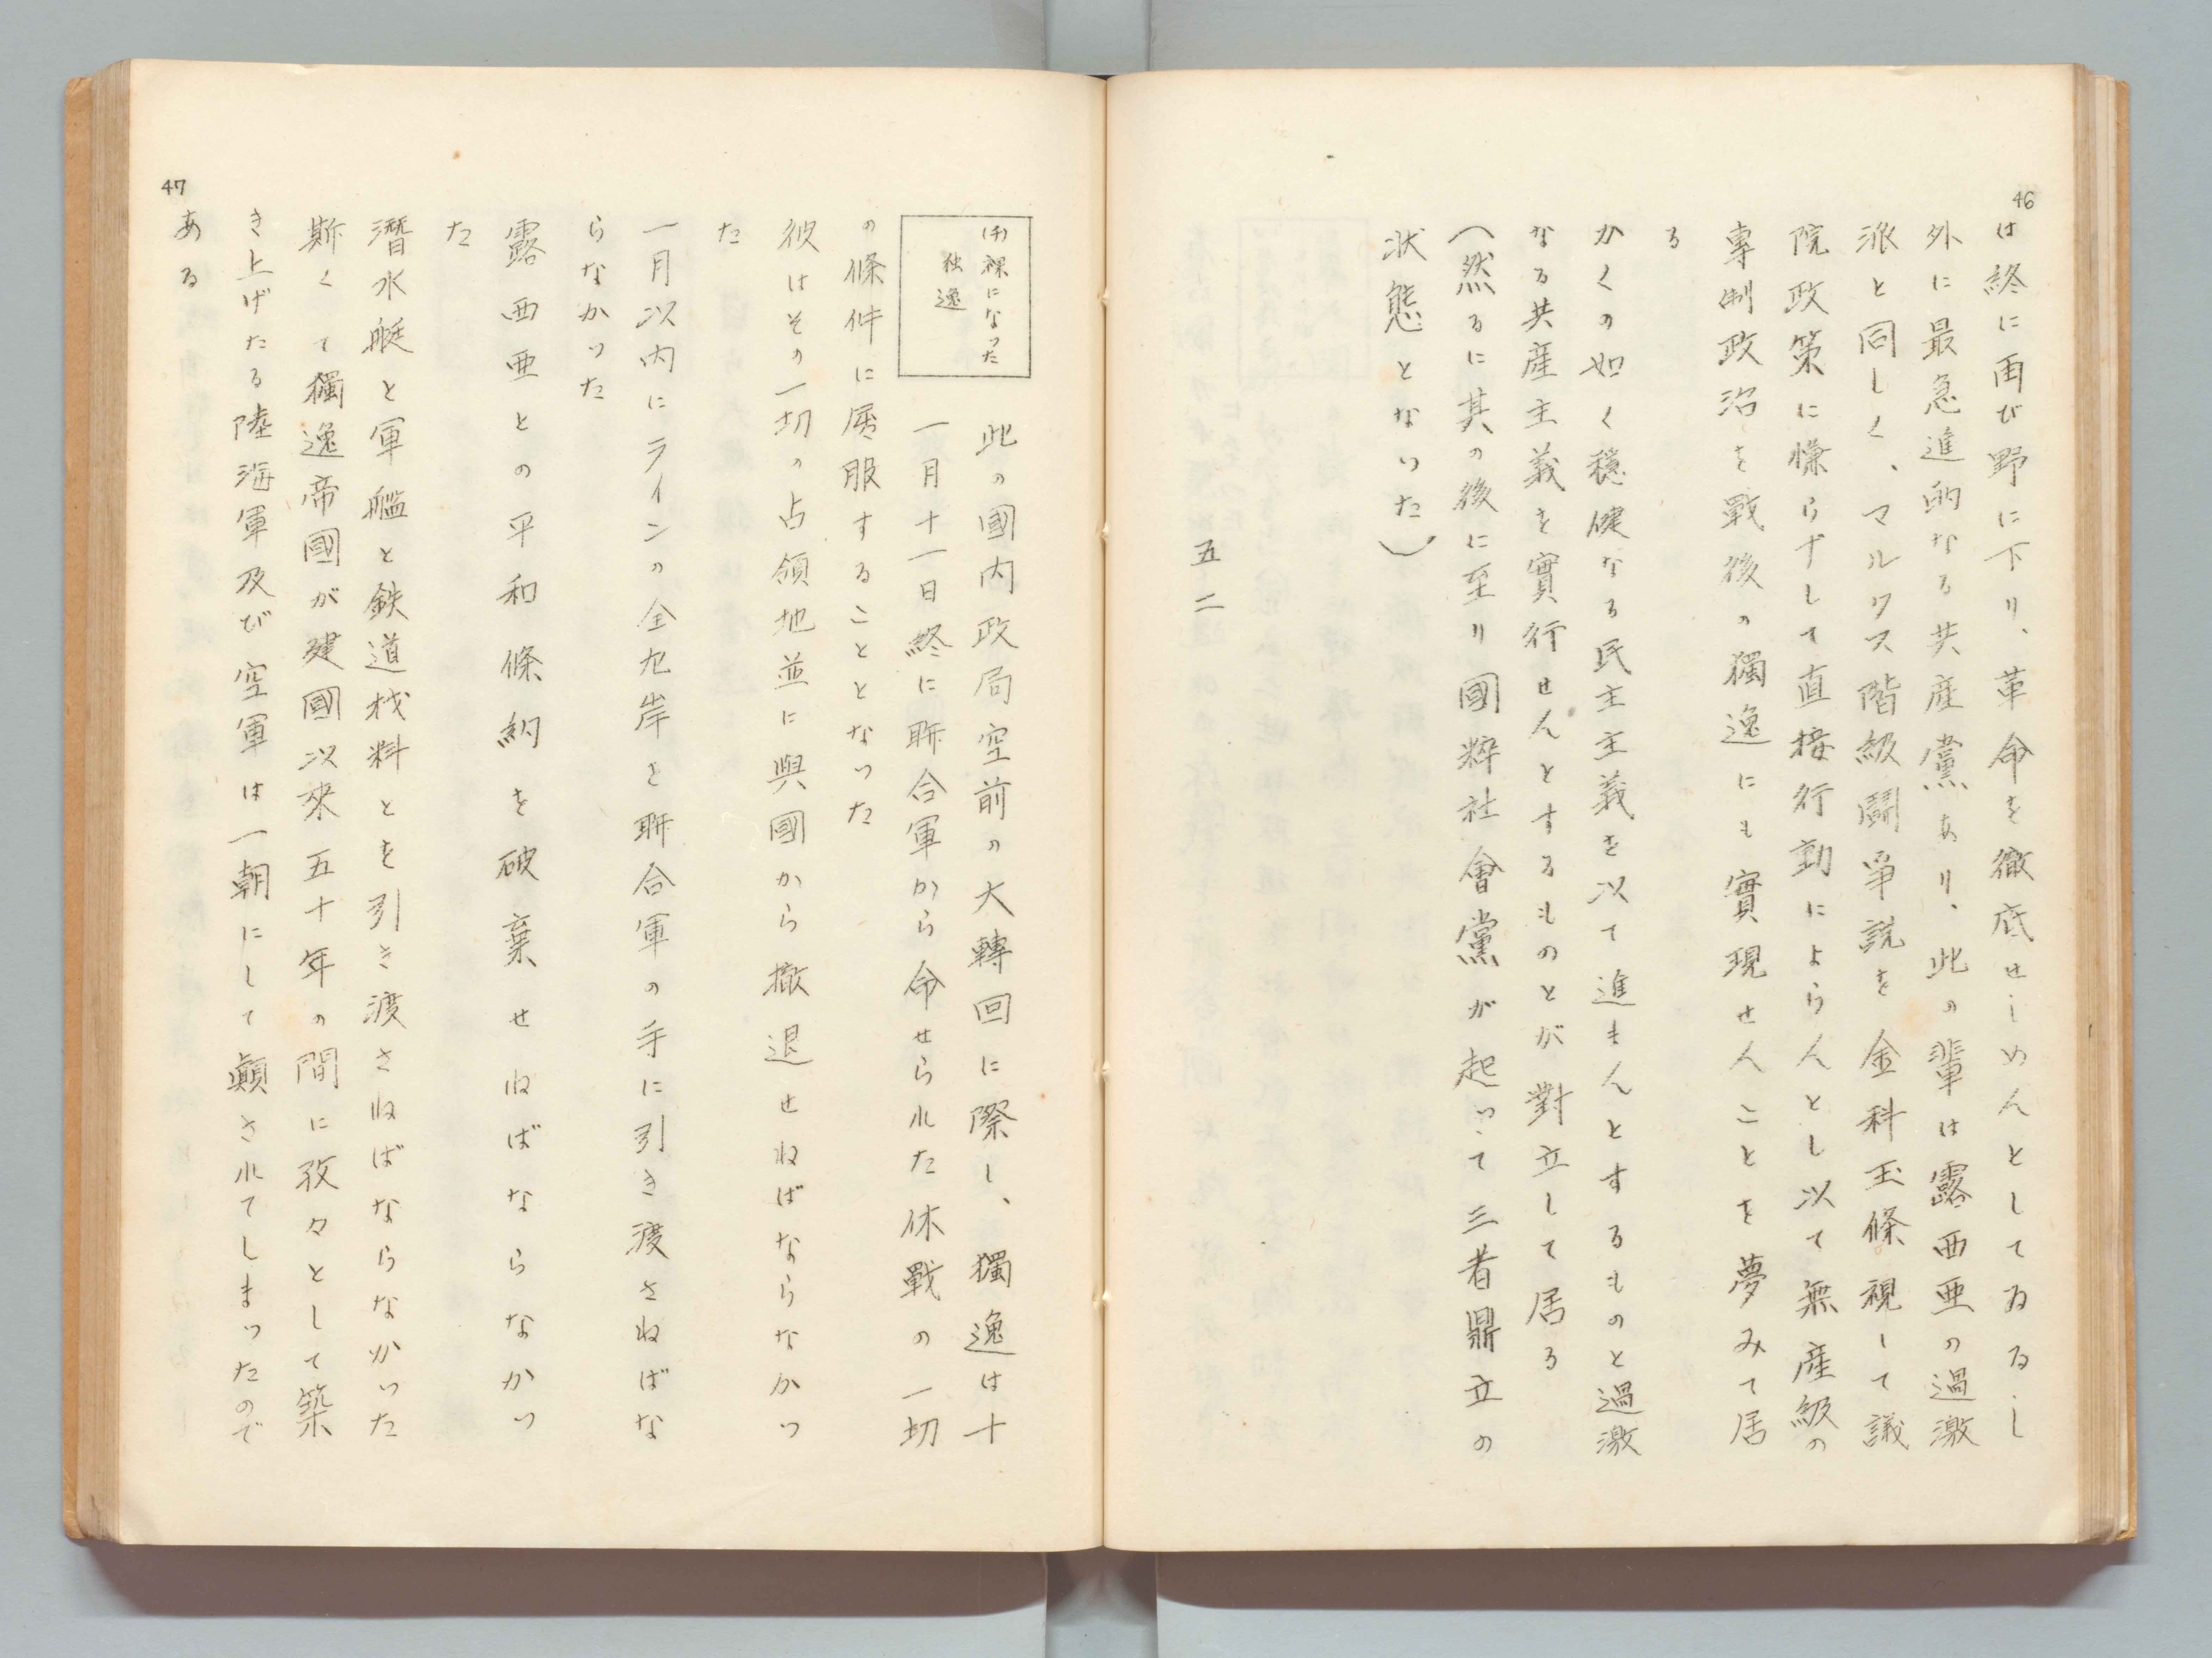 46
は終に再び野に下り、革命を徹底せしめんとしてゐるし
外に最急進的なる共産黨あり、此の輩は露西亜の過激
派と同しく、マルクス階級鬪爭説を金科玉條視して議
院政策に慊らずして直接行動によらんとし以て無産級の
專制政治を戰後の獨逸にも實現せんことを夢みて居
る
かくの如く穏健なる民主主義を以て進まんとするものと過激
なる共産主義を實行せんとするものとが對立して居る
(然るに其の後に至り國粹社會黨が起つて三者鼎立の
状態となつた)
五二
(チ)裸になった
独逸
此の國内政局空前の大轉回に際し、獨逸は十
一月十一日終に聯合軍から命せられた休戰の一切
の條件に屈服することとなつた
彼はその一切の占領地並に與國から撤退せねばならなかつ
た
一月以内にラインの全左岸を聯合軍の手に引き渡さねばな
らなかつた
露西亜との平和條約を破棄せねばならなかつ
た
潛水艇と軍艦と鉄道材料とを引き渡さねばならなかつた
斯くて獨逸帝國が建國以來五十年の間に孜々として築
き上げたる陸海軍及び空軍は一朝にして顚されてしまつたので
ある
47